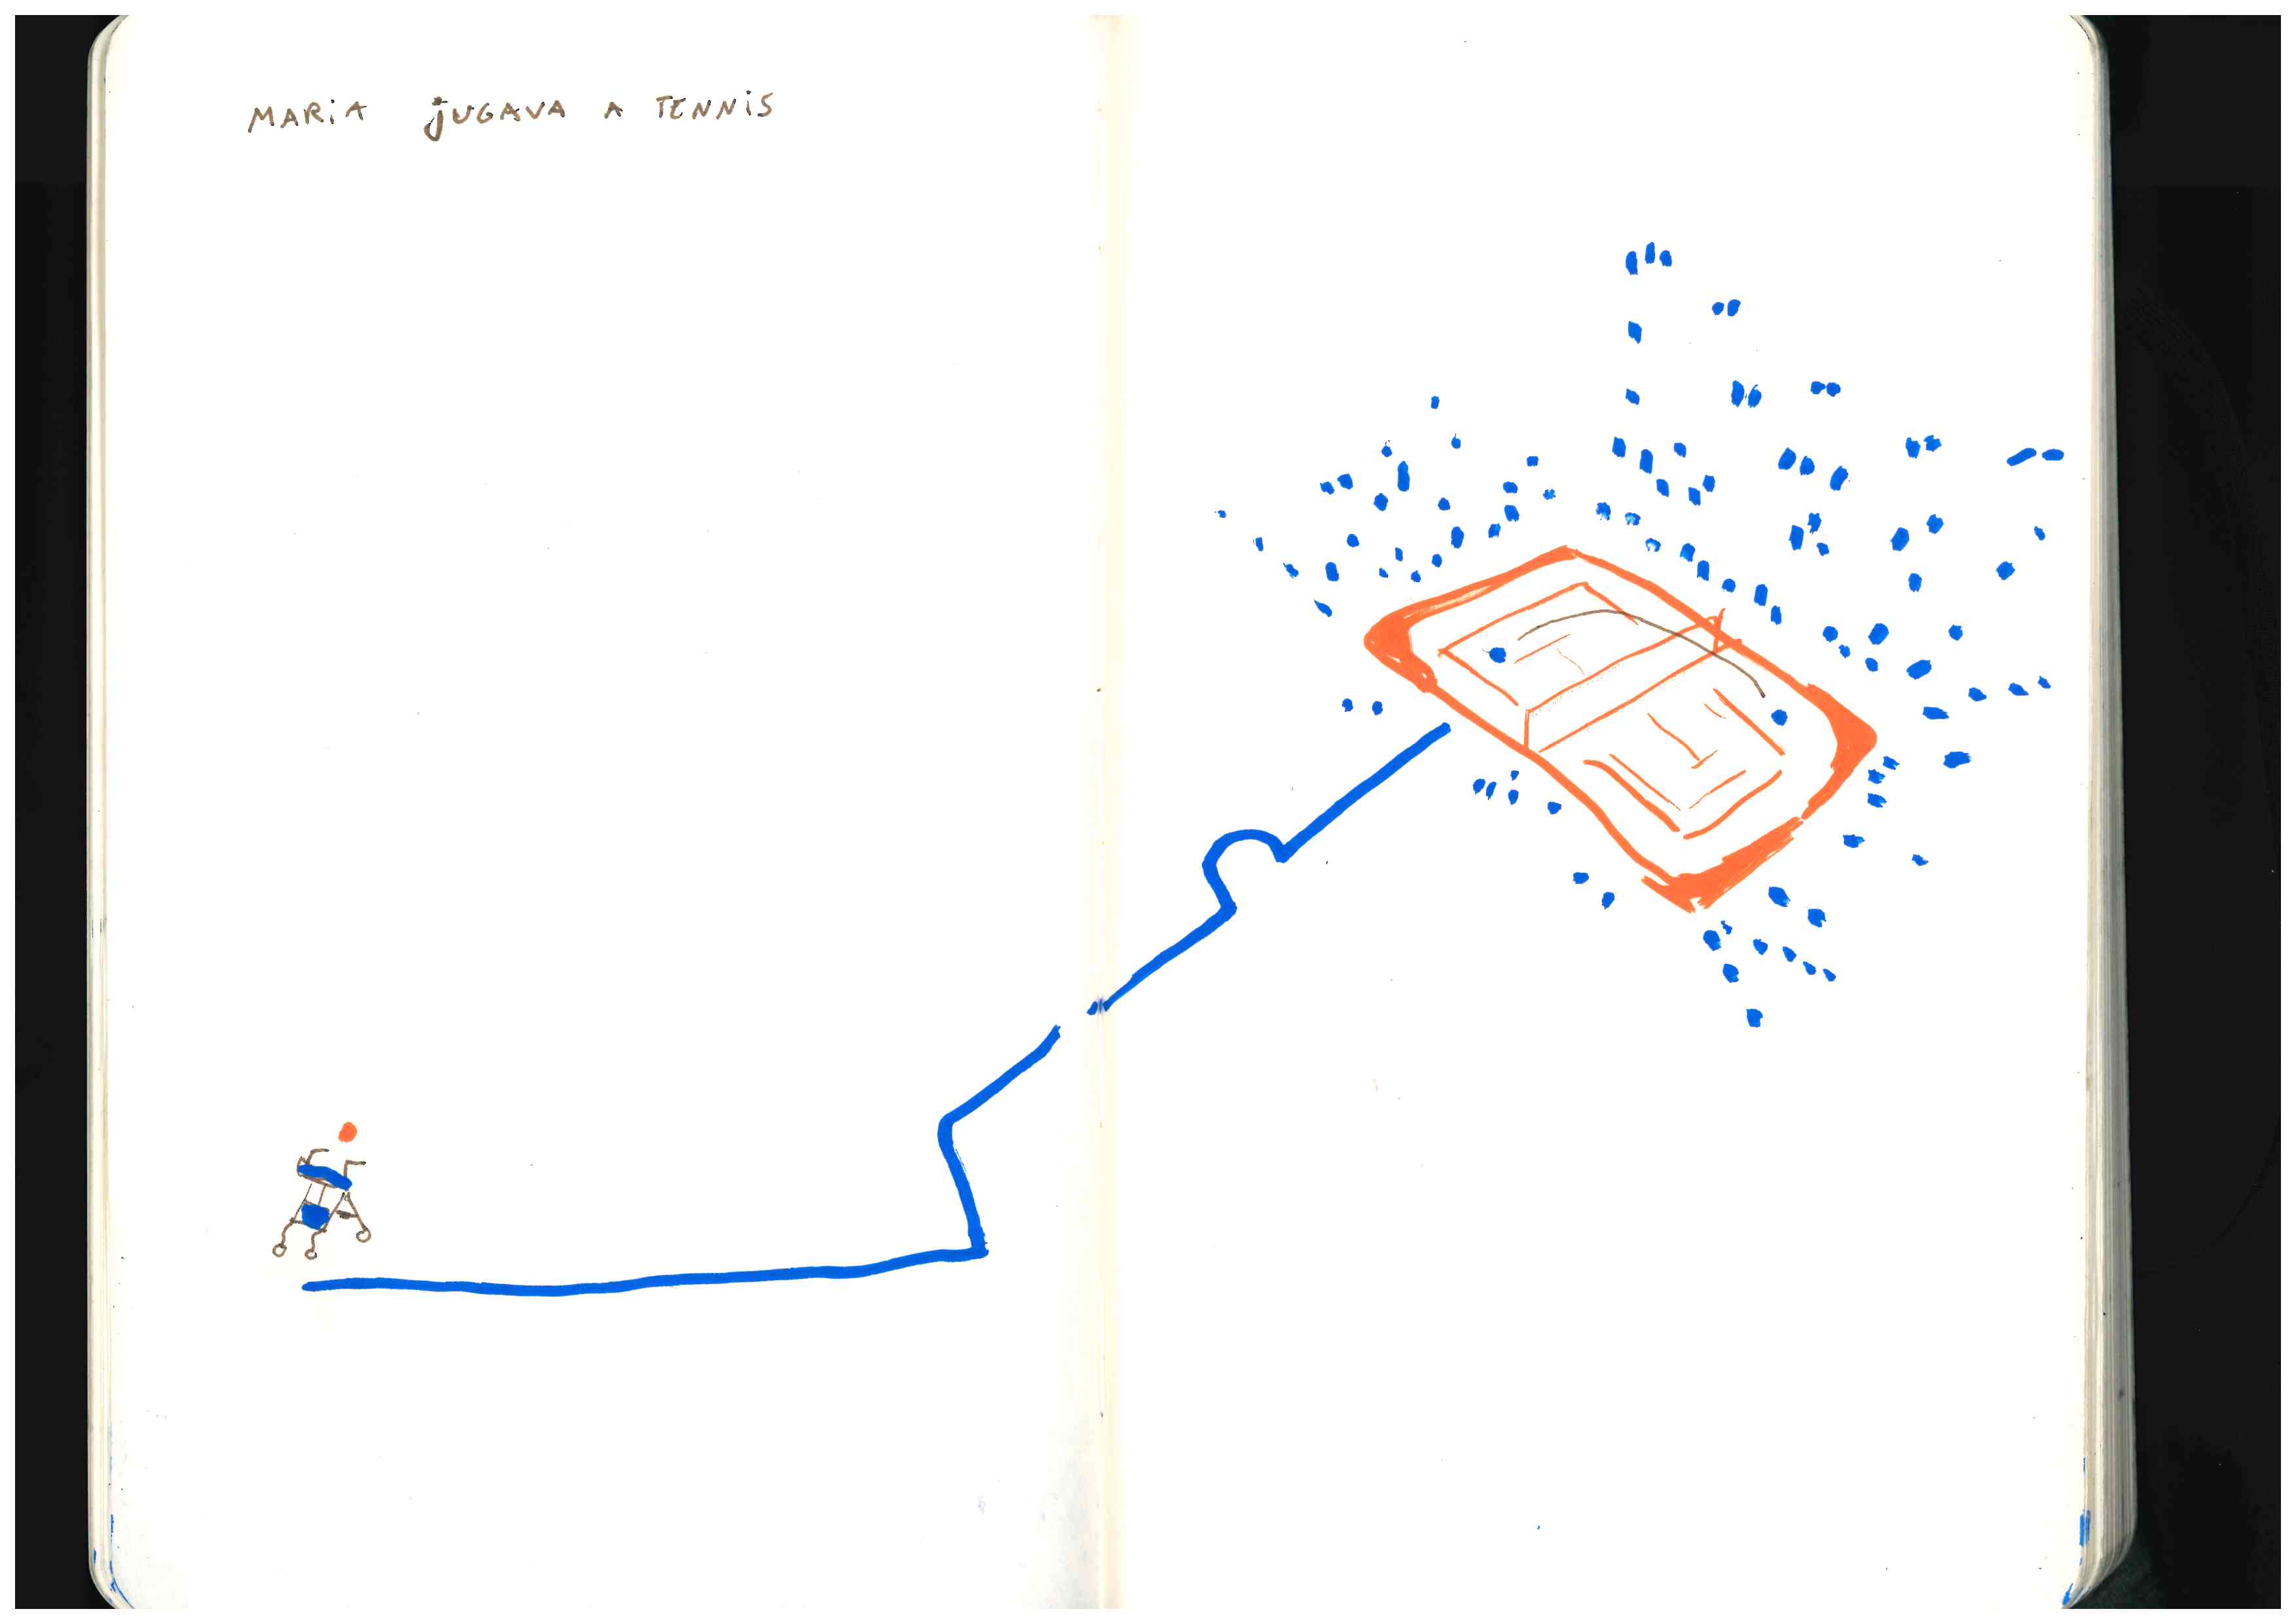 MARiA jUGAVA A TENNiS